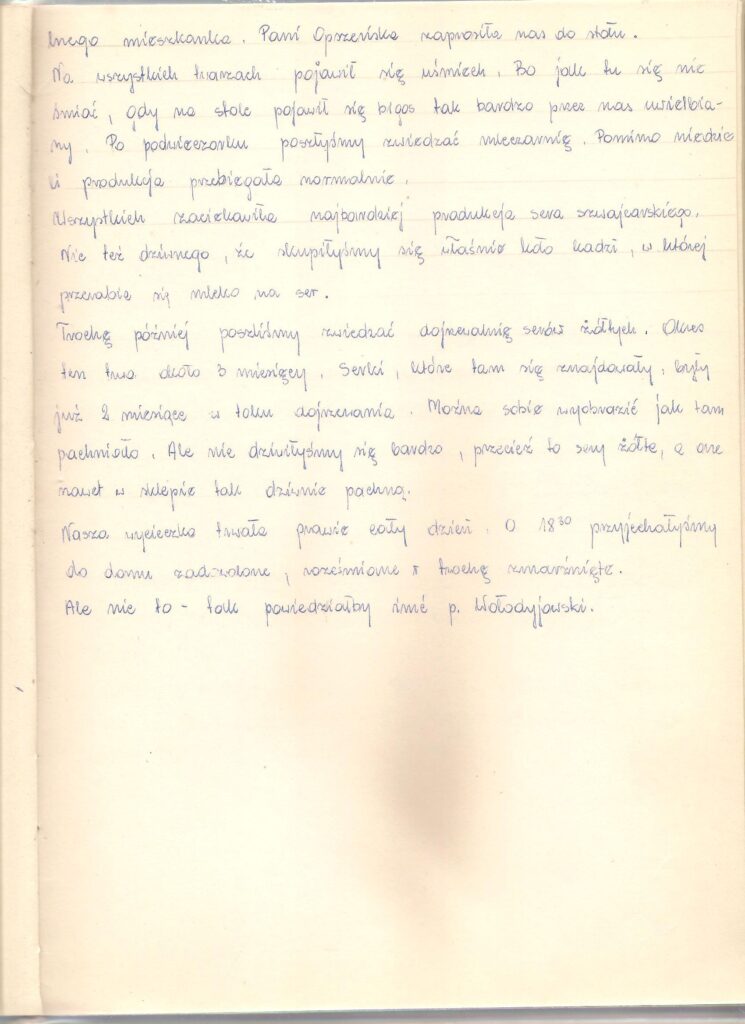 lnego mieszkanka. Pani Opszeńska zaprosiła nas do stołu.
Na wszystkich twarzach pojawił się uśmiech. Bo jak tu się nie
śmiać, gdy na stole pojawił się bigos tak bardzo przez nas uwielbia-
ny. Po podwieczorku poszłyśmy zwiedzać mleczarnię. Pomimo niedzie
li produkcja przebiegała normalnie.
Wszystkich zaciekawiła najbardziej produkcja sera szwajcarskiego.
Nic też dziwnego, że skupiłyśmy się właśnie koło kadzi, w której
przerabia się mleko na ser.
Trochę później poszliśmy zwiedzać dojrzewalnię serów żółtych. Okres
ten trwa około 3 miesięcy. Serki, które tam się znajdowały, były
już 2 miesiące w toku dojrzewania. Można sobie wyobrazić jak tam
pachniało. Ale nie dziwiłyśmy się bardzo, przecież to sery żółte, a one
nawet w sklepie tak dziwnie pachną.
Nasza wycieczka trwała prawie cały dzień. O 18³⁰ przyjechałyśmy
do domu zadowolone, roześmiane i trochę zmarznięte.
Ale nic to - tak powiedziałby imć p. Wołodyjowski.